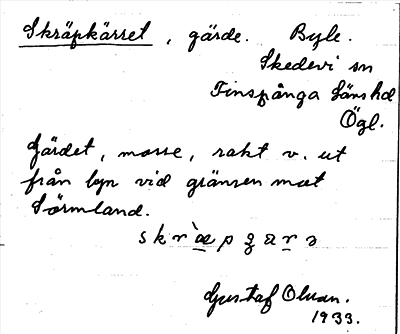 Skräpkärret, gärde. Byle.
Skedevi sn
Finspånga läns hd
Ögl.
Gärdet, mosse, rakt v. ut
från byn vid gränsen mot
Sörmland.
Gustaf Olsson.
1933.